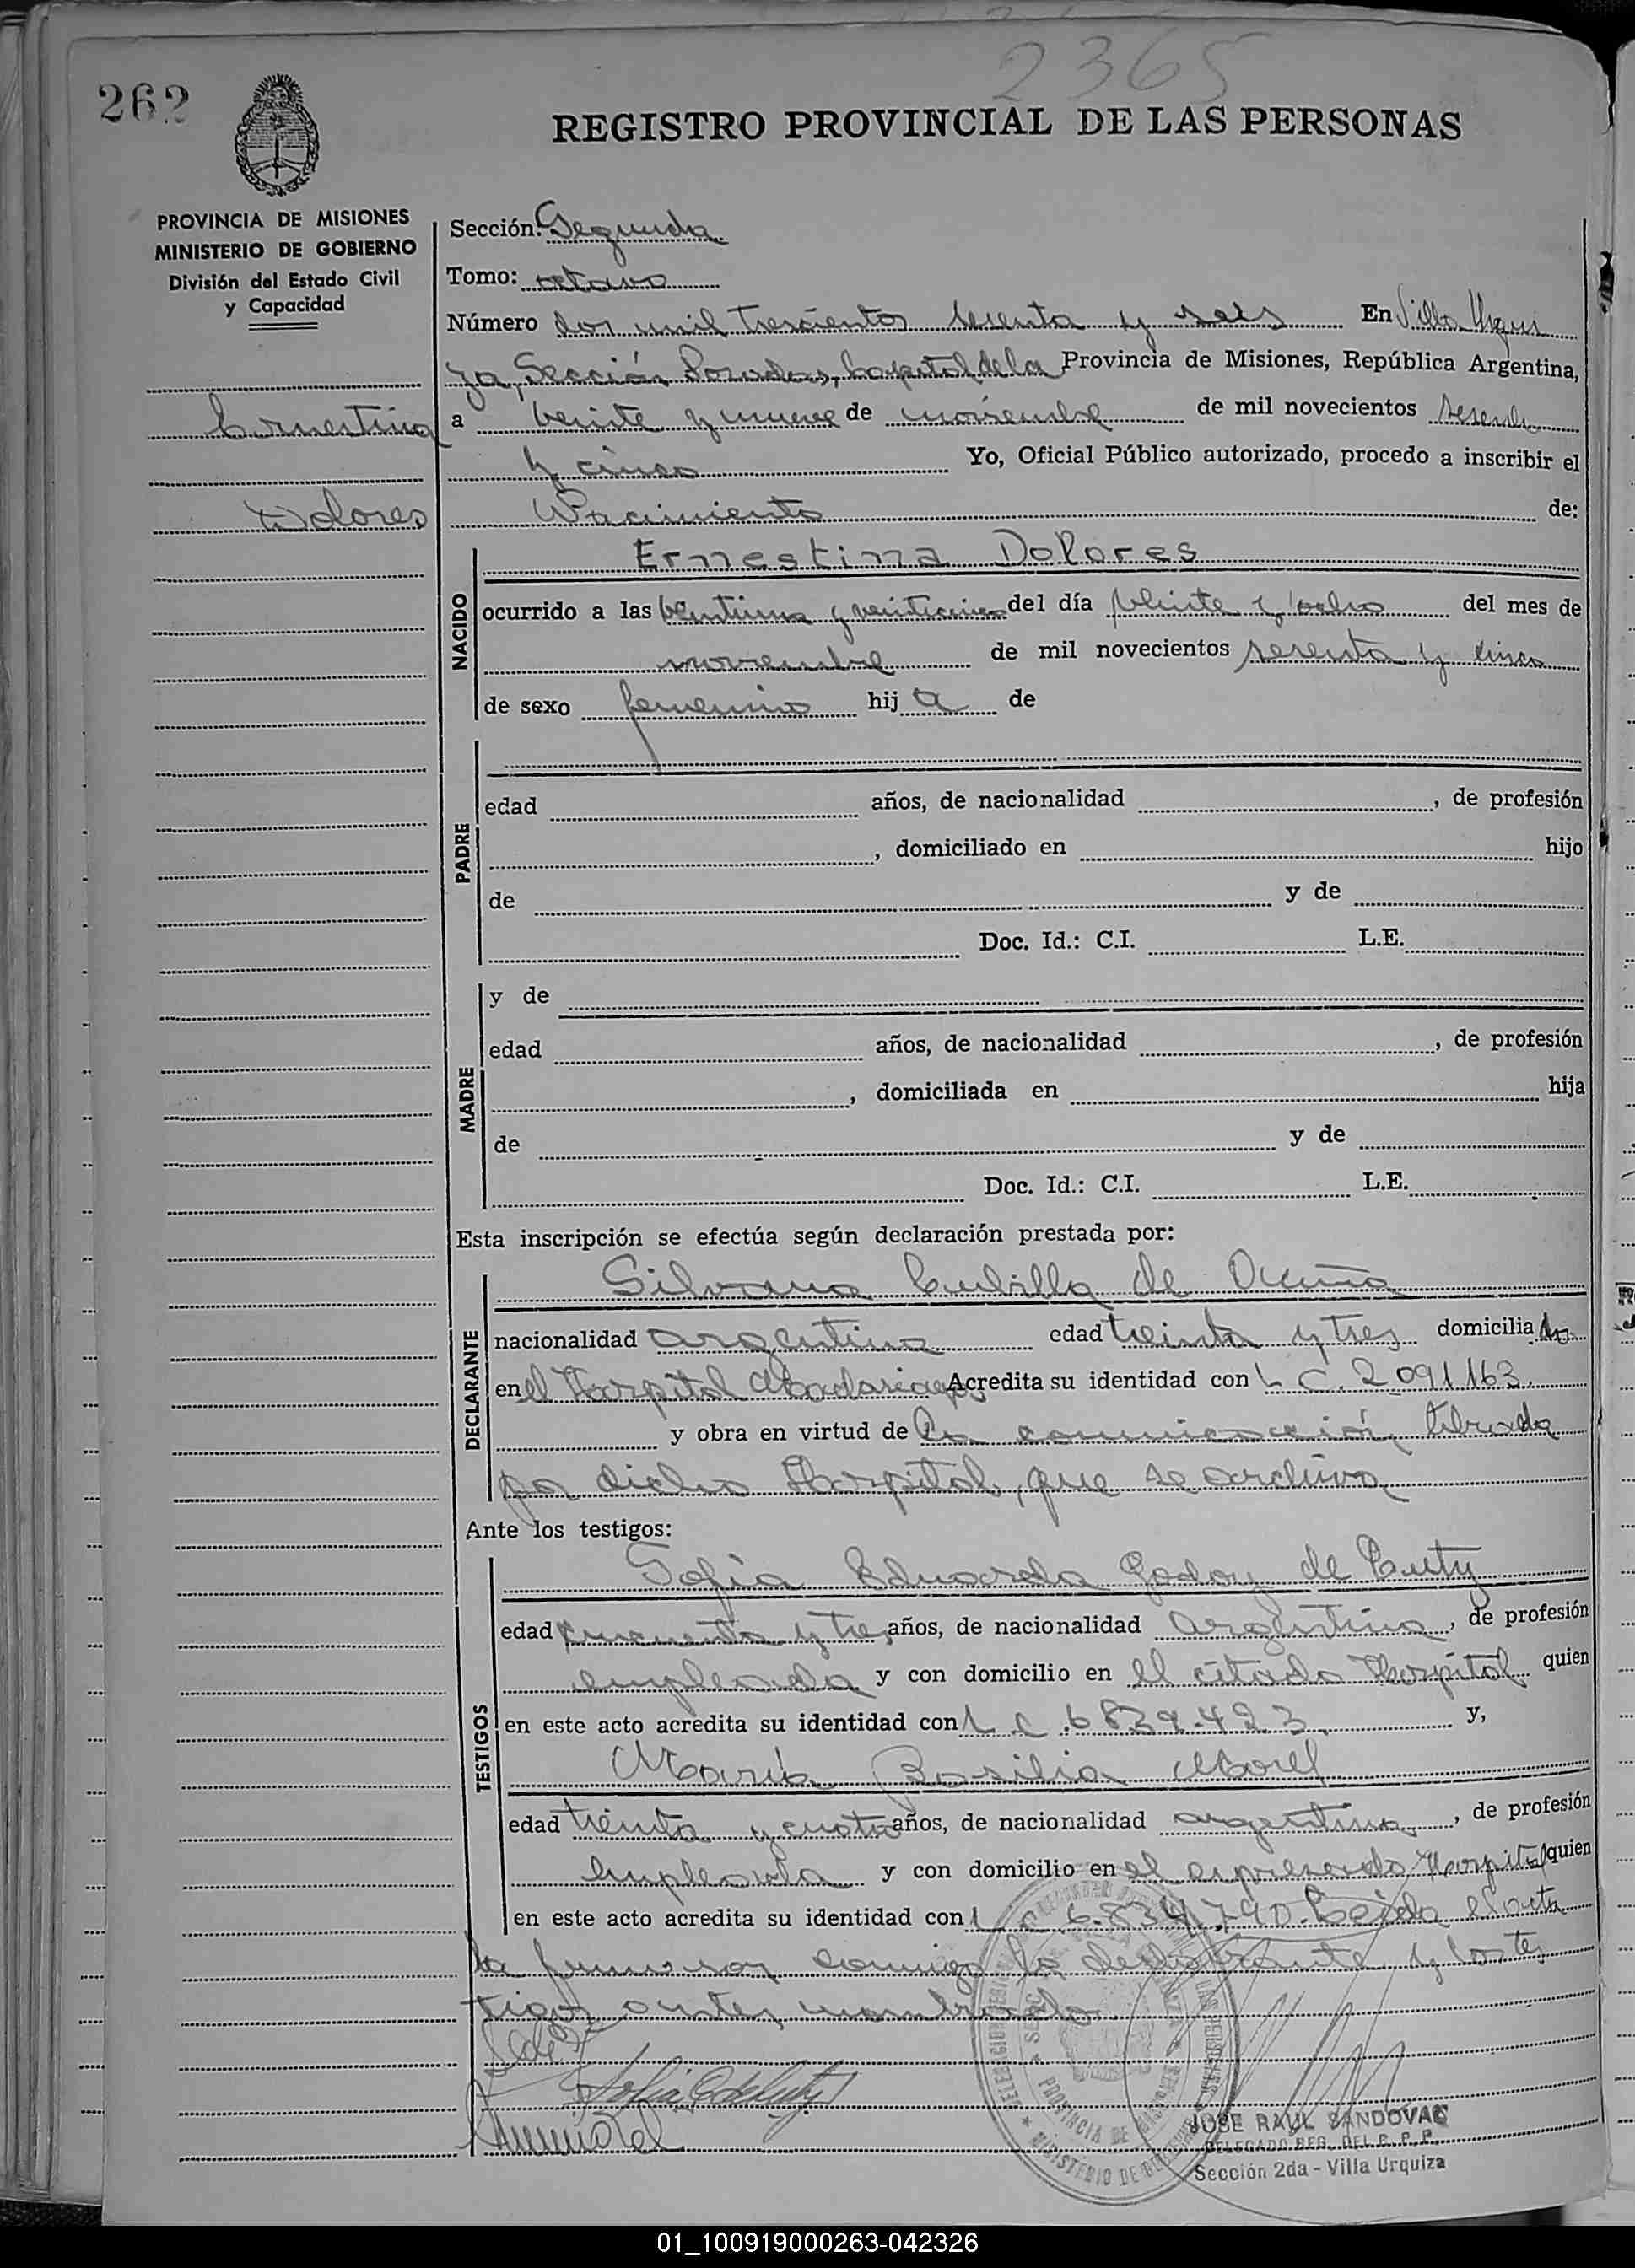 2365
262
REGISTRO PROVINCIAL DE LAS PERSONAS
PROVINCIA DE MISIONES
MINISTERIO DE GOBIERNO
División del Estado Civil
y Capacidad
Ernestina
Dolores
Sección: Segunda
Tomo: octavo
Número dos mil trescientos sesenta y seis En Villa Urqui
za, Sección Posadas, Capital de la Provincia de Misiones, República Argentina,
a veinte y nueve de noviembre de mil novecientos sesenta
y cinco Yo, Oficial Público autorizado, procedo a inscribir el
Nacimiento de:
NACIDO
Ernestina Dolores
ocurrido a las y veinticinco del día veinte y ocho del mes de
noviembre de mil novecientos sesenta y cinco
de sexo femenino hija de
PADRE
edad años, de nacionalidad , de profesión
, domiciliado en hijo
de y de
Doc. Id.: C.I. L.E.
MADRE
y de
edad años, de nacionalidad , de profesión
, domiciliada en hija
de y de
Doc. Id.: C.I. L.E.
Esta inscripción se efectúa según declaración prestada por:
DECLARANTE
Silvana Cubilla de Ocuña
nacionalidad argentina edad treinta y tres domiciliada
en el Hospital Madariaga Acredita su identidad con L C. 2 091 163.
y obra en virtud de la comunicación librada
por dicho Hospital, que se archiva
Ante los testigos:
TESTIGOS
Sofia Eduarda Godoy de Cuty
edad cincuenta y tres años, de nacionalidad argentina, de profesión
empleada y con domicilio en el citado Hospital quien
en este acto acredita su identidad con L C .6839.423 y,
María Basilia Morel
edad treinta y cuatro años, de nacionalidad argentina, de profesión
empleada y con domicilio en el expresado Hospital quien
en este acto acredita su identidad con L C 6.834.790. Leída el acta
la firmaron conmigo la declarante y los tes
tigos antes nombrados.
JOSE RAUL SANDOVAL
DELEGADO REG. DEL R. P. P.
Sección 2da - Villa Urquiza
PROVINCIA DE MISIONES
MINISTERIO DE GOBIERNO
01_100919000263-042326